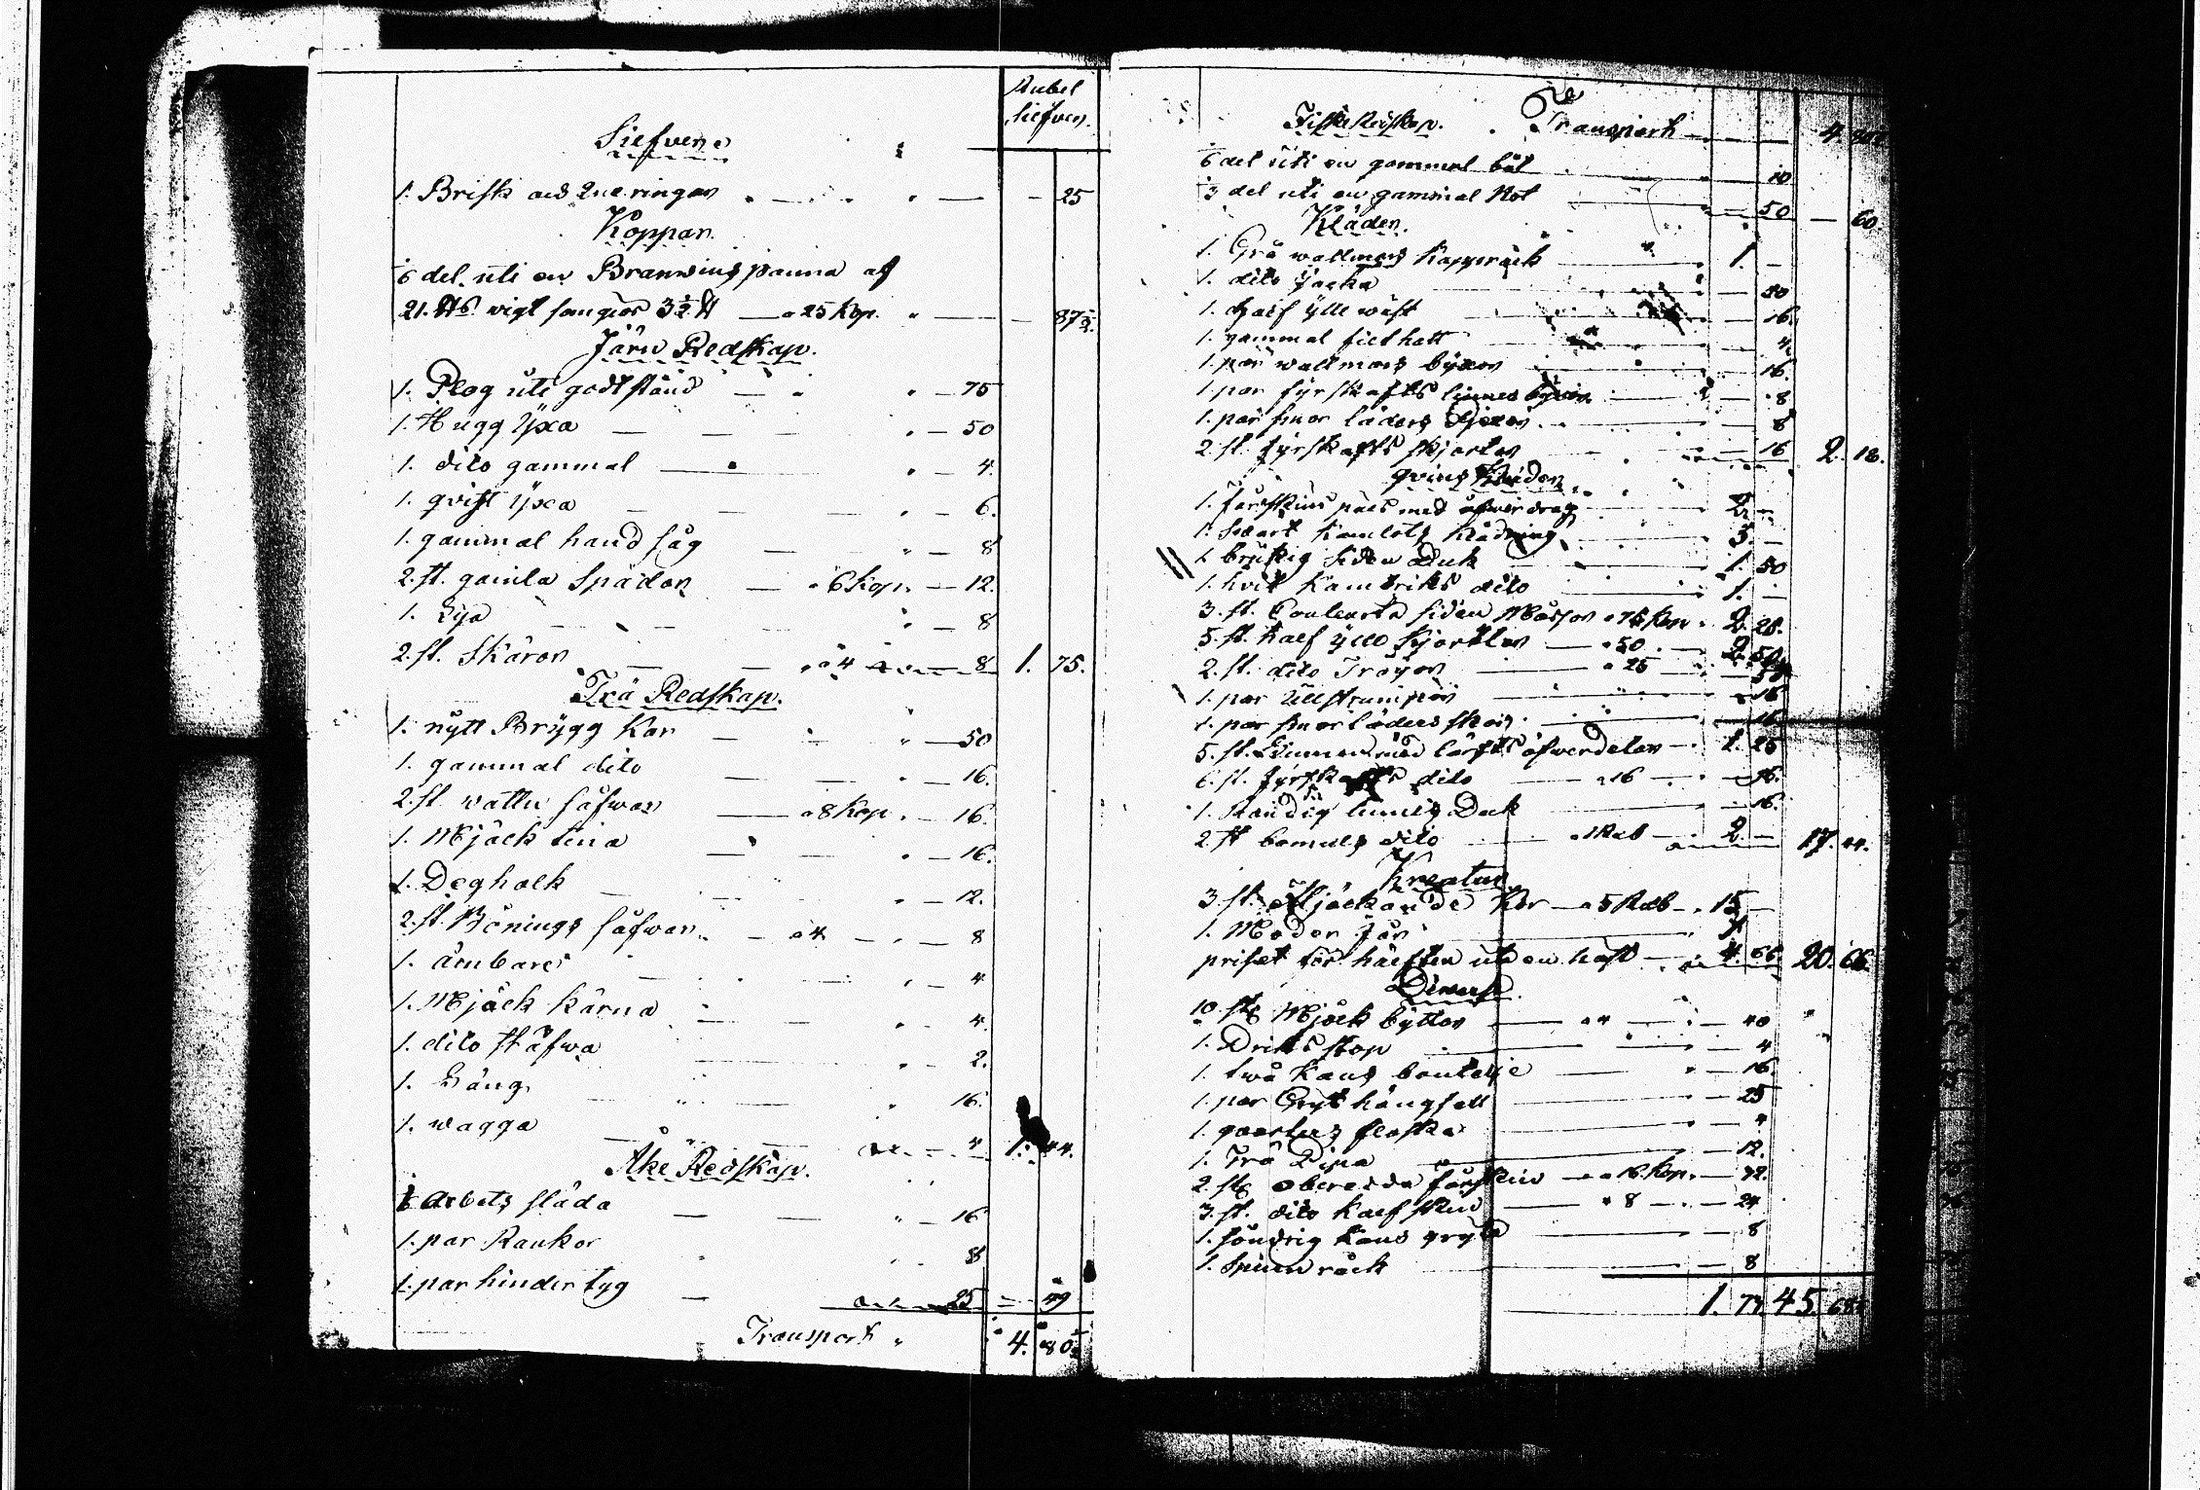 Rubel
Silfver.
Silfver
1. Brisk och 2ne ringar — 25
Koppar.
1/6 del uti en Branwins panna af
21. ℔s wigt som giör 3 1/2 ℔ — a 25 Kop. — 87 1/2
Järn Redskap.
1. Plog uti godt stånd — 75
1. Hugg Yxa — 50
1. dito gammal — 4.
1. qvist Yxa — 6.
1. gammal hand såg — 8
2. st. gamla Spädar — a 6 Kop. — 12.
1. Lya — 8
2. st. Skäror — a 4 — 8 1. 75.
Trä Redskap.
1. nytt Brygg Kar — 50
1. gammal dito — 16.
2. st. wattu såfwar — a 8 Kop. — 16.
1. Mjöck tina — 16.
1. Degholk — 12.
2. st. Bönings såfwar — a 4 — 8
1. ämbare — 4
1. Mjöck kärna — 4.
1. dito Håfwa — 2.
1. Säng — 16.
1. wagga — 4 1. 44.
Åke Redskap.
1. Arbets släda — 16
1. par Rankor — 8
1. par hinder tyg — 25 — 49
Transport 4. 80 1/2
Fiske Redskap. Transport 4.
1/6 del uti en gammal båt — 10
1/3 del uti en gammal Not — 50 — 60.
Kläder.
1. Grå wallmars Kappråck — 1. —
1. dito Jacka — 50
1. half ylle wäst — 16.
1. gammal filt hatt — 4.
1. par wallmars byxor — 16.
1. par fyrskafts linnes byxor — 8
1. par smor läders — 8
2. st. fyrskafts skjortor — 16 2. 18.
qvins Kläder.
1. fårskins päls med öfwerdrag — 2. —
1. Swart Kamlots Klädning — 3. —
1. brukig siden Duk — 1. 50
1. hvit Kambriks dito — 1. —
3. st. Couleurta siden Mössor a 75 Kop. 2. 25.
5. st. half ylle Kjortlar — a 50 — 2. 50
2. st. dito Tröjor — a 25 — 50
1. par Ullstrumpor — 16
1. par smorläders skor — 16.
5. st. med lärfts öfwerdelar — 1. 25
6. st. fyrskafts dito — a 16 — 96.
1. Randig linnes Duk — 16.
2. st bomuls dito — a 1 Rub — 2. — 17. 44.
Kreatur
3. st. Mjöckande Kor — a 5 Rub — 15 —
1. Moder får — 1
priset för hälften uti en häst — 4. 66 20. 66.
Diverse.
10. st. Mjöck byttor — a 4 — 40
1. Dricks stop — 4
1. twå Kans boutelje — 16.
1. par Gryt hängsell — 25
1. qwarters flaska — 4
1. Trä Pipa — 12.
2. st. oberedda fårskin — a 16. Kop. — 32.
3. st. dito Kalfskin — a 8 — 24
1. söndrig Kans gryta — 8
1. Spinn råck — 8
1. 73 45. 68